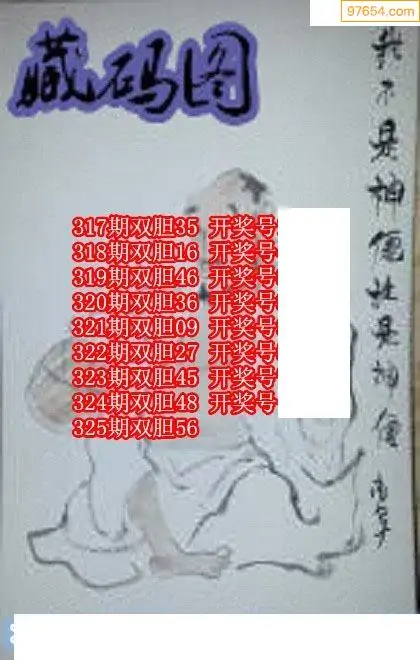 97654.com
藏码图
我不是神仙谁是神仙
317期双胆35 开奖号
318期双胆16 开奖号
319期双胆46 开奖号
320期双胆36 开奖号
321期双胆09 开奖号
322期双胆27 开奖号
323期双胆45 开奖号
324期双胆48 开奖号
325期双胆56